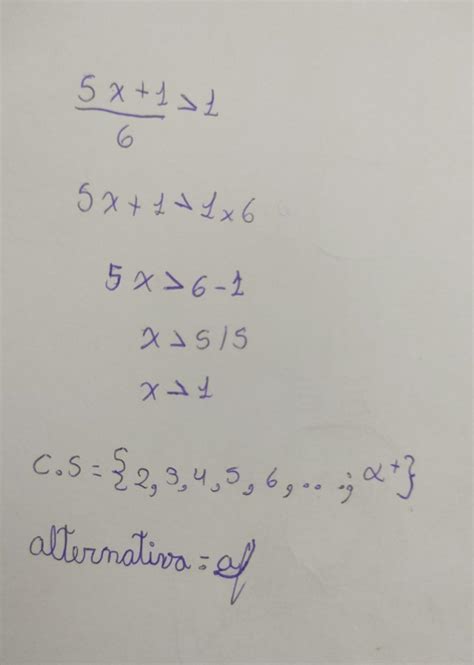 5x+1/6 > 1
5x+1 > 1x6
5x > 6-1
x > 5/5
x > 1
C.S = {2, 3, 4, 5, 6, ... ; α+}
alternativa = a)